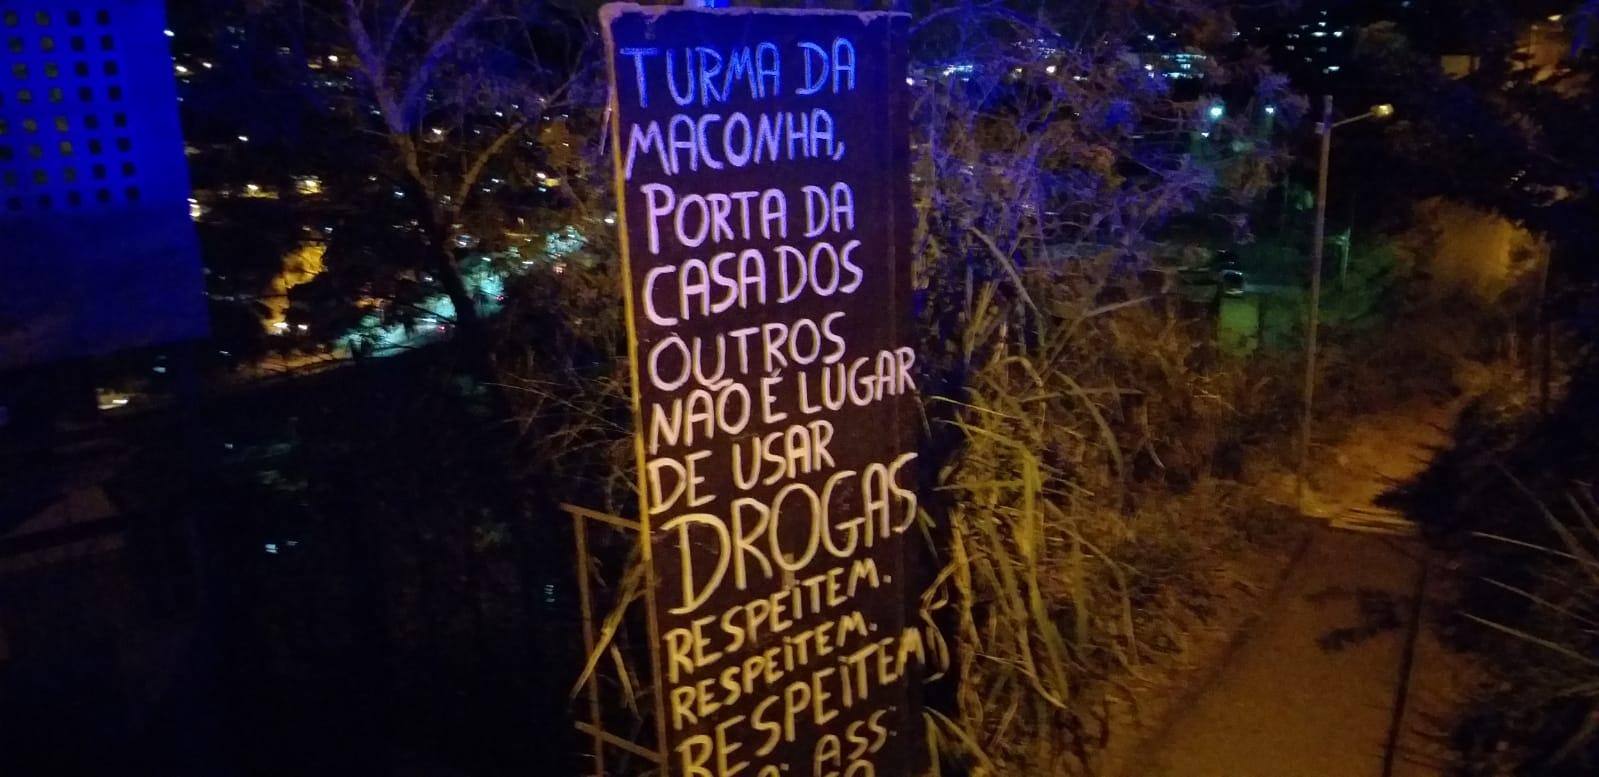 TURMA DA
MACONHA,
PORTA DA
CASA DOS
OUTROS
NÃO É LUGAR
DE USAR
DROGAS
RESPEITEM.
RESPEITEM.
RESPEITEM
ASS: